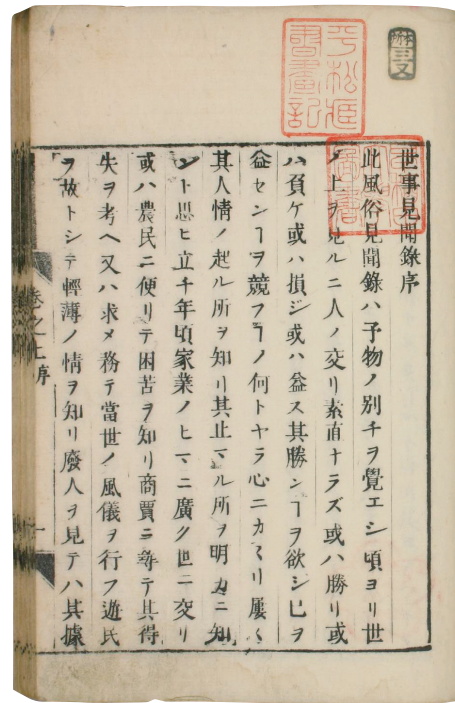 世事見聞錄序
此風俗見聞錄ハ予物ノ別チヲ覺エシ頃ヨリ世
ノ上ヲ見ルニ人ノ交リ素直ナラズ或ハ勝リ或
ハ負ケ或ハ損ジ或ハ益ス其勝ンヿヲ欲シ已ヲ
益センヿヲ競フヿノ何トヤラ心ニカヽリ屢〱
其人情ノ起ル所ヲ知リ其止マル所ヲ明カニ知
ント思ヒ立千年頃家業ノヒマニ廣ク世ニ交リ
或ハ農民ニ便リテ困苦ヲ知リ商賈ニ尋テ其得
失ヲ考ヘ又ハ求メ務テ當世ノ風儀ヲ行フ遊民
ヲ故トシテ輕薄ノ情ヲ知リ廢人ヲ見テハ其據
卷之七序
一